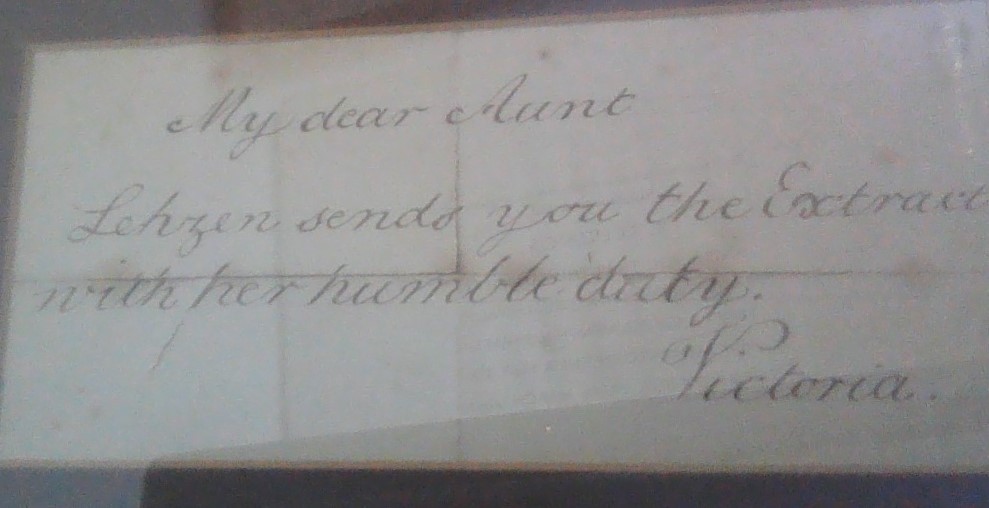 My dear Aunt
Lehzen sends you the Extract
with her humble duty.
Victoria.